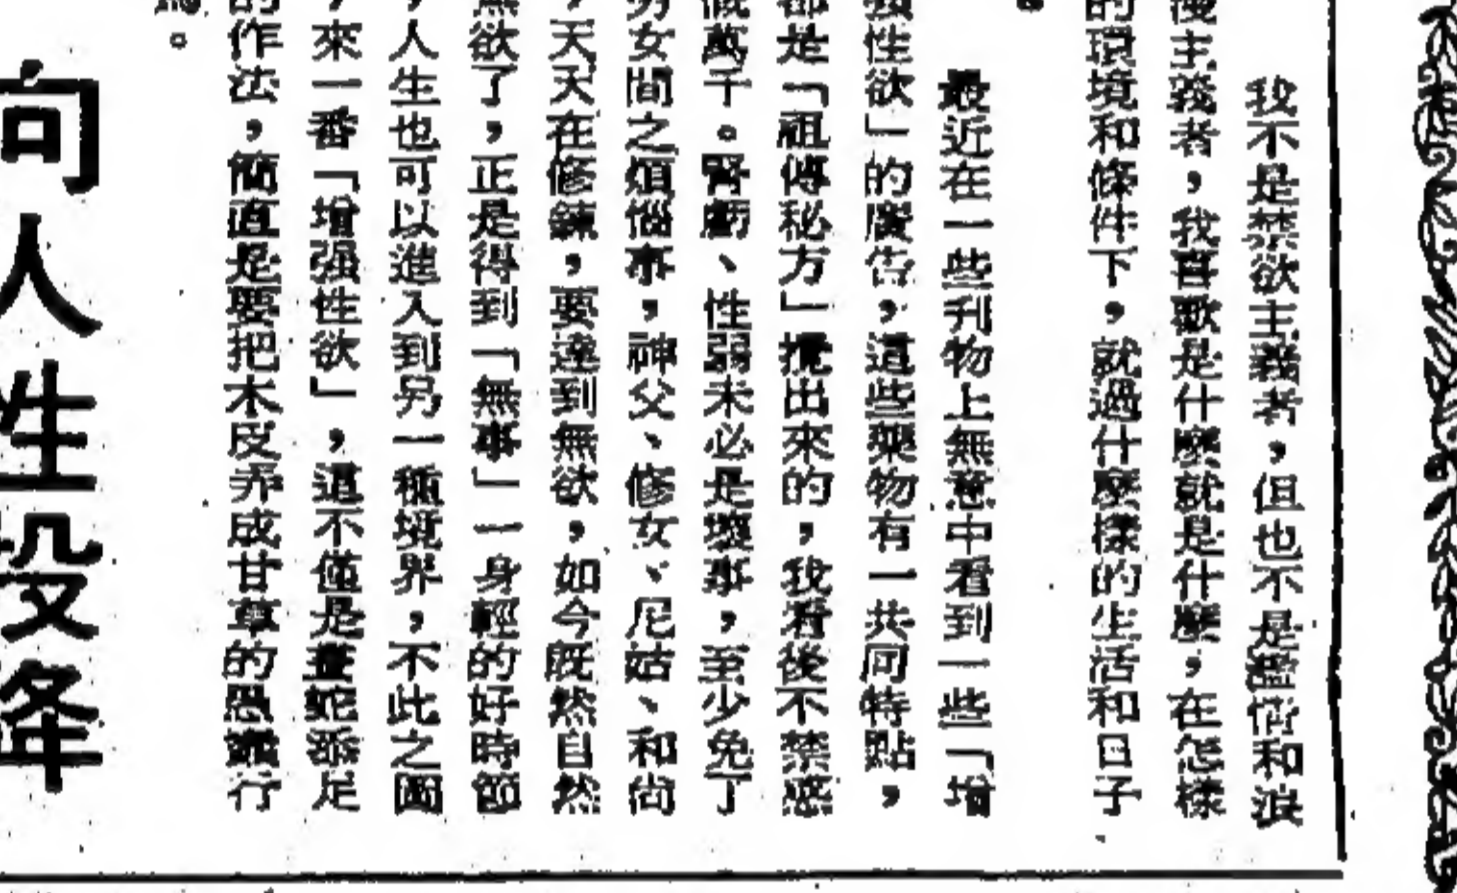 我不是禁欲主義者，但也不是濫情和浪
漫主義者，我喜歡是什麼就是什麼，在怎樣
的環境和條件下，就過什麼樣的生活和日子
。
最近在一些刋物上無意中看到一些「增
強性欲」的廣告，這些藥物有一共同特點，
都是「祖傳秘方」攪出來的，我看後不禁感
慨萬千。腎虧、性弱未必是壞事，至少免了
男女間之煩惱事，神父、修女、尼姑、和尚
，天天在修鍊，要達到無欲，如今既然自然
無欲了，正是得到「無事」一身輕的好時節
，人生也可以進入到另一種境界，不此之圖
，來一番「增强性欲」，這不僅是畫蛇添足
的作法，簡直是要把木皮弄成甘草的愚蠢行
爲。
向人性投降